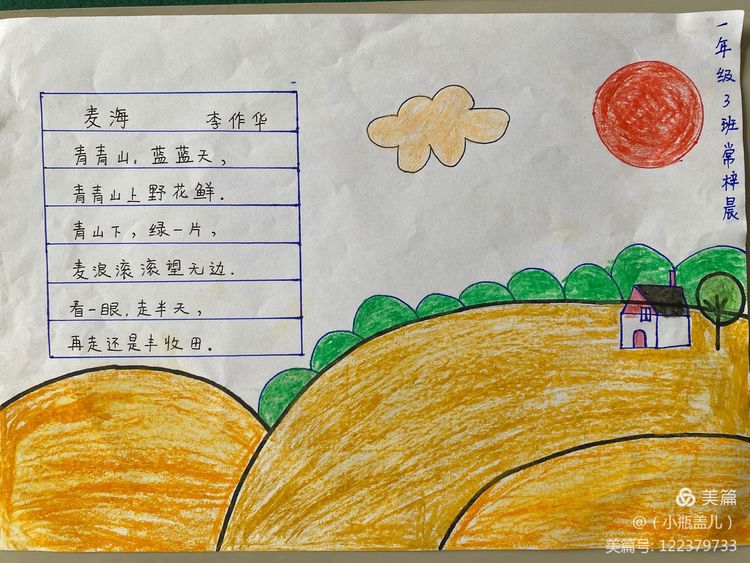 麦海 李作华
青青山,蓝蓝天,
青青山上野花鲜.
青山下,绿一片,
麦浪滚滚望无边.
看一眼,走半天,
再走还是丰收田.
一年级3班常梓晨
美篇
@（小瓶盖儿）
美篇号: 122379733